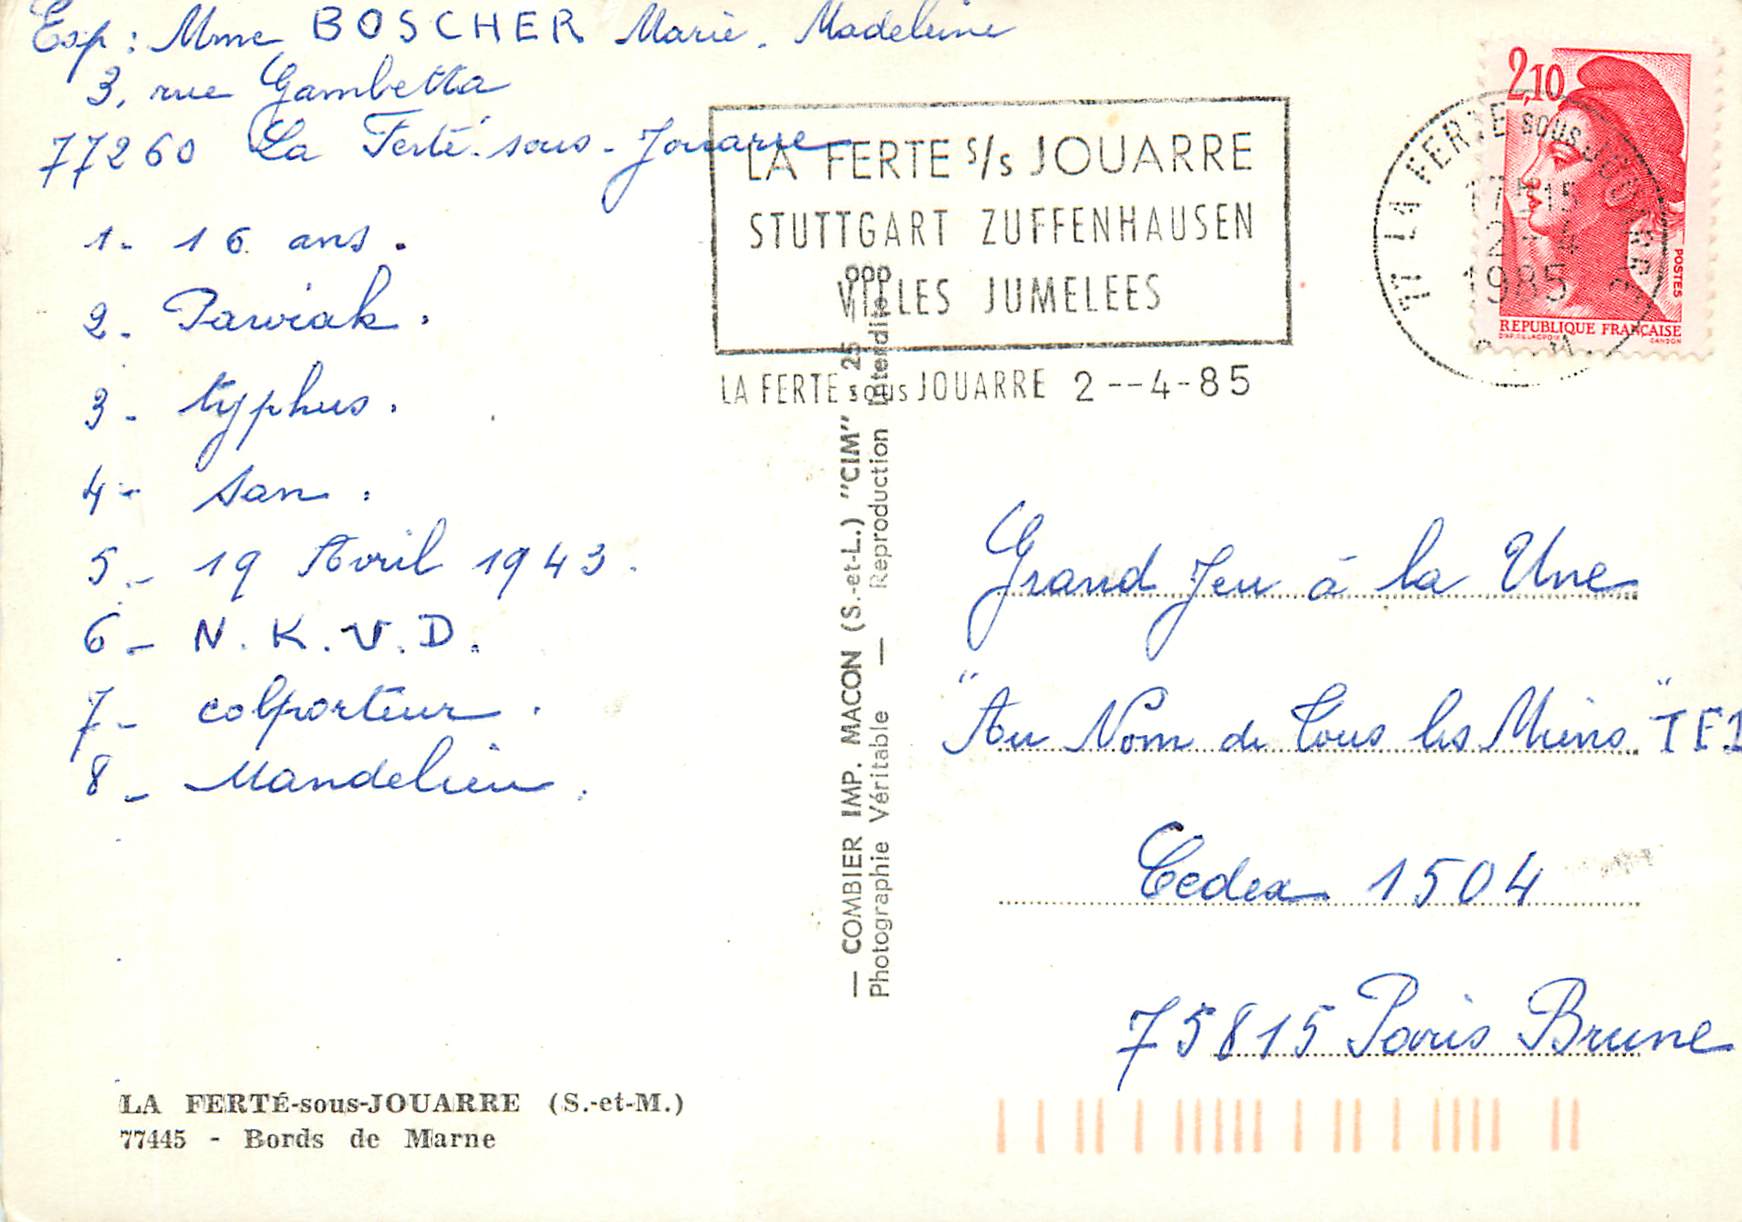 Esp : Mme BOSCHER Marie. Madeleine
3, rue Gambetta
77260 La Ferté-sous-Jouarre
1- 16 ans.
2- Pawiak.
3- typhus.
4- San.
5- 19 Avril 1943.
6- N.K.V.D.
7- colporteur.
8- Mandelieu.
LA FERTÉ-sous-JOUARRE (S.-et-M.)
77445 - Bords de Marne
— COMBIER IMP. MACON (S.-et-L.) "CIM" 25 — 000
Photographie Véritable — Reproduction Interdite
LA FERTE S/S JOUARRE
STUTTGART ZUFFENHAUSEN
VILLES JUMELEES
LA FERTE sous JOUARRE 2--4-85
77 LA FERTE SOUS JOUARRE
17H15
2 - 4
1985
2,10
POSTES
REPUBLIQUE FRANÇAISE
D'AP. DELACROIX
GANDON
Grand Jeu à la Une
"Au Nom de Tous les Miens" TF1
Cedex 1504
75815 Paris Brune